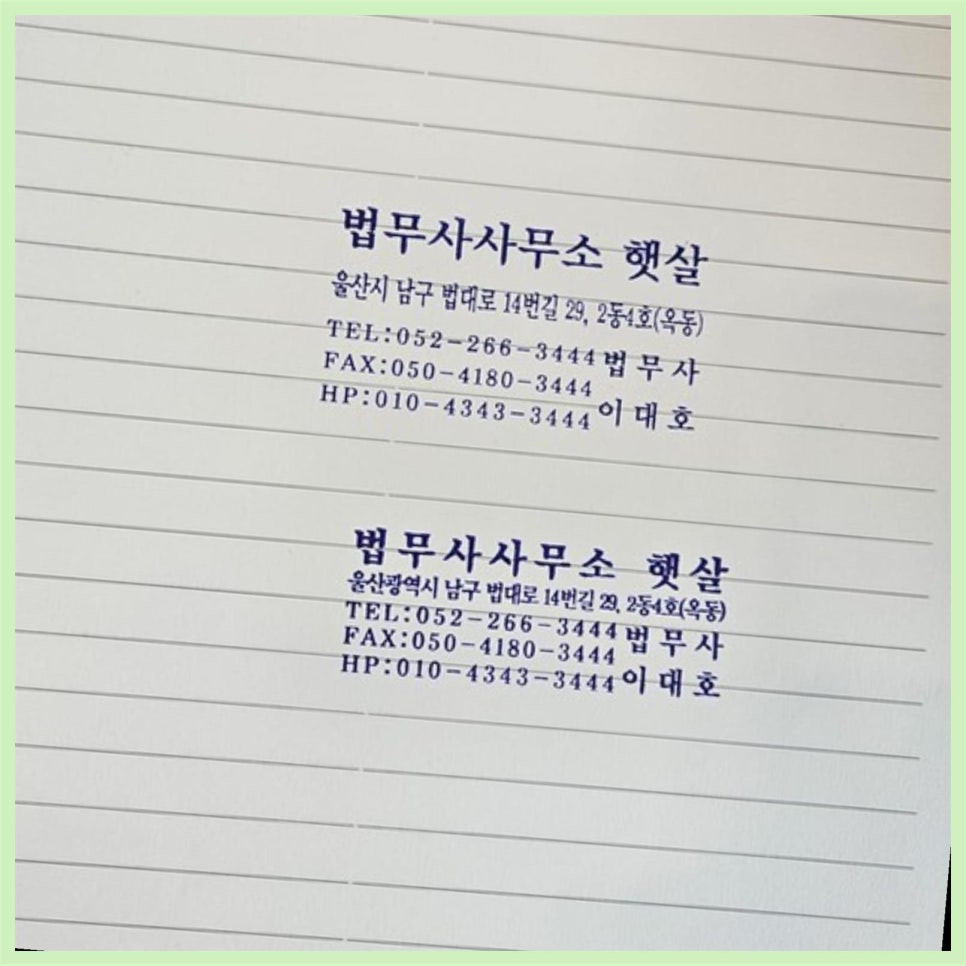 법무사사무소 햇살
울산시 남구 법대로 14번길 29, 2동4호(옥동)
TEL:052-266-3444 법무사
FAX:050-4180-3444
HP:010-4343-3444 이대호
법무사사무소 햇살
울산광역시 남구 법대로 14번길 29, 2동4호(옥동)
TEL:052-266-3444 법무사
FAX:050-4180-3444
HP:010-4343-3444 이대호